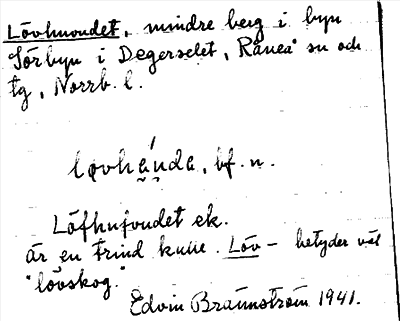 Lövhuvudet, mindre berg i byn
Sörbyn i Degerselet, Råneå sn och
tg, Norrb. l.
lovhánda, bf. n.
Löfhufvudet ek.
är en trind kulle. Löv - betyder väl
"lövskog."
Edvin Brännström 1941.